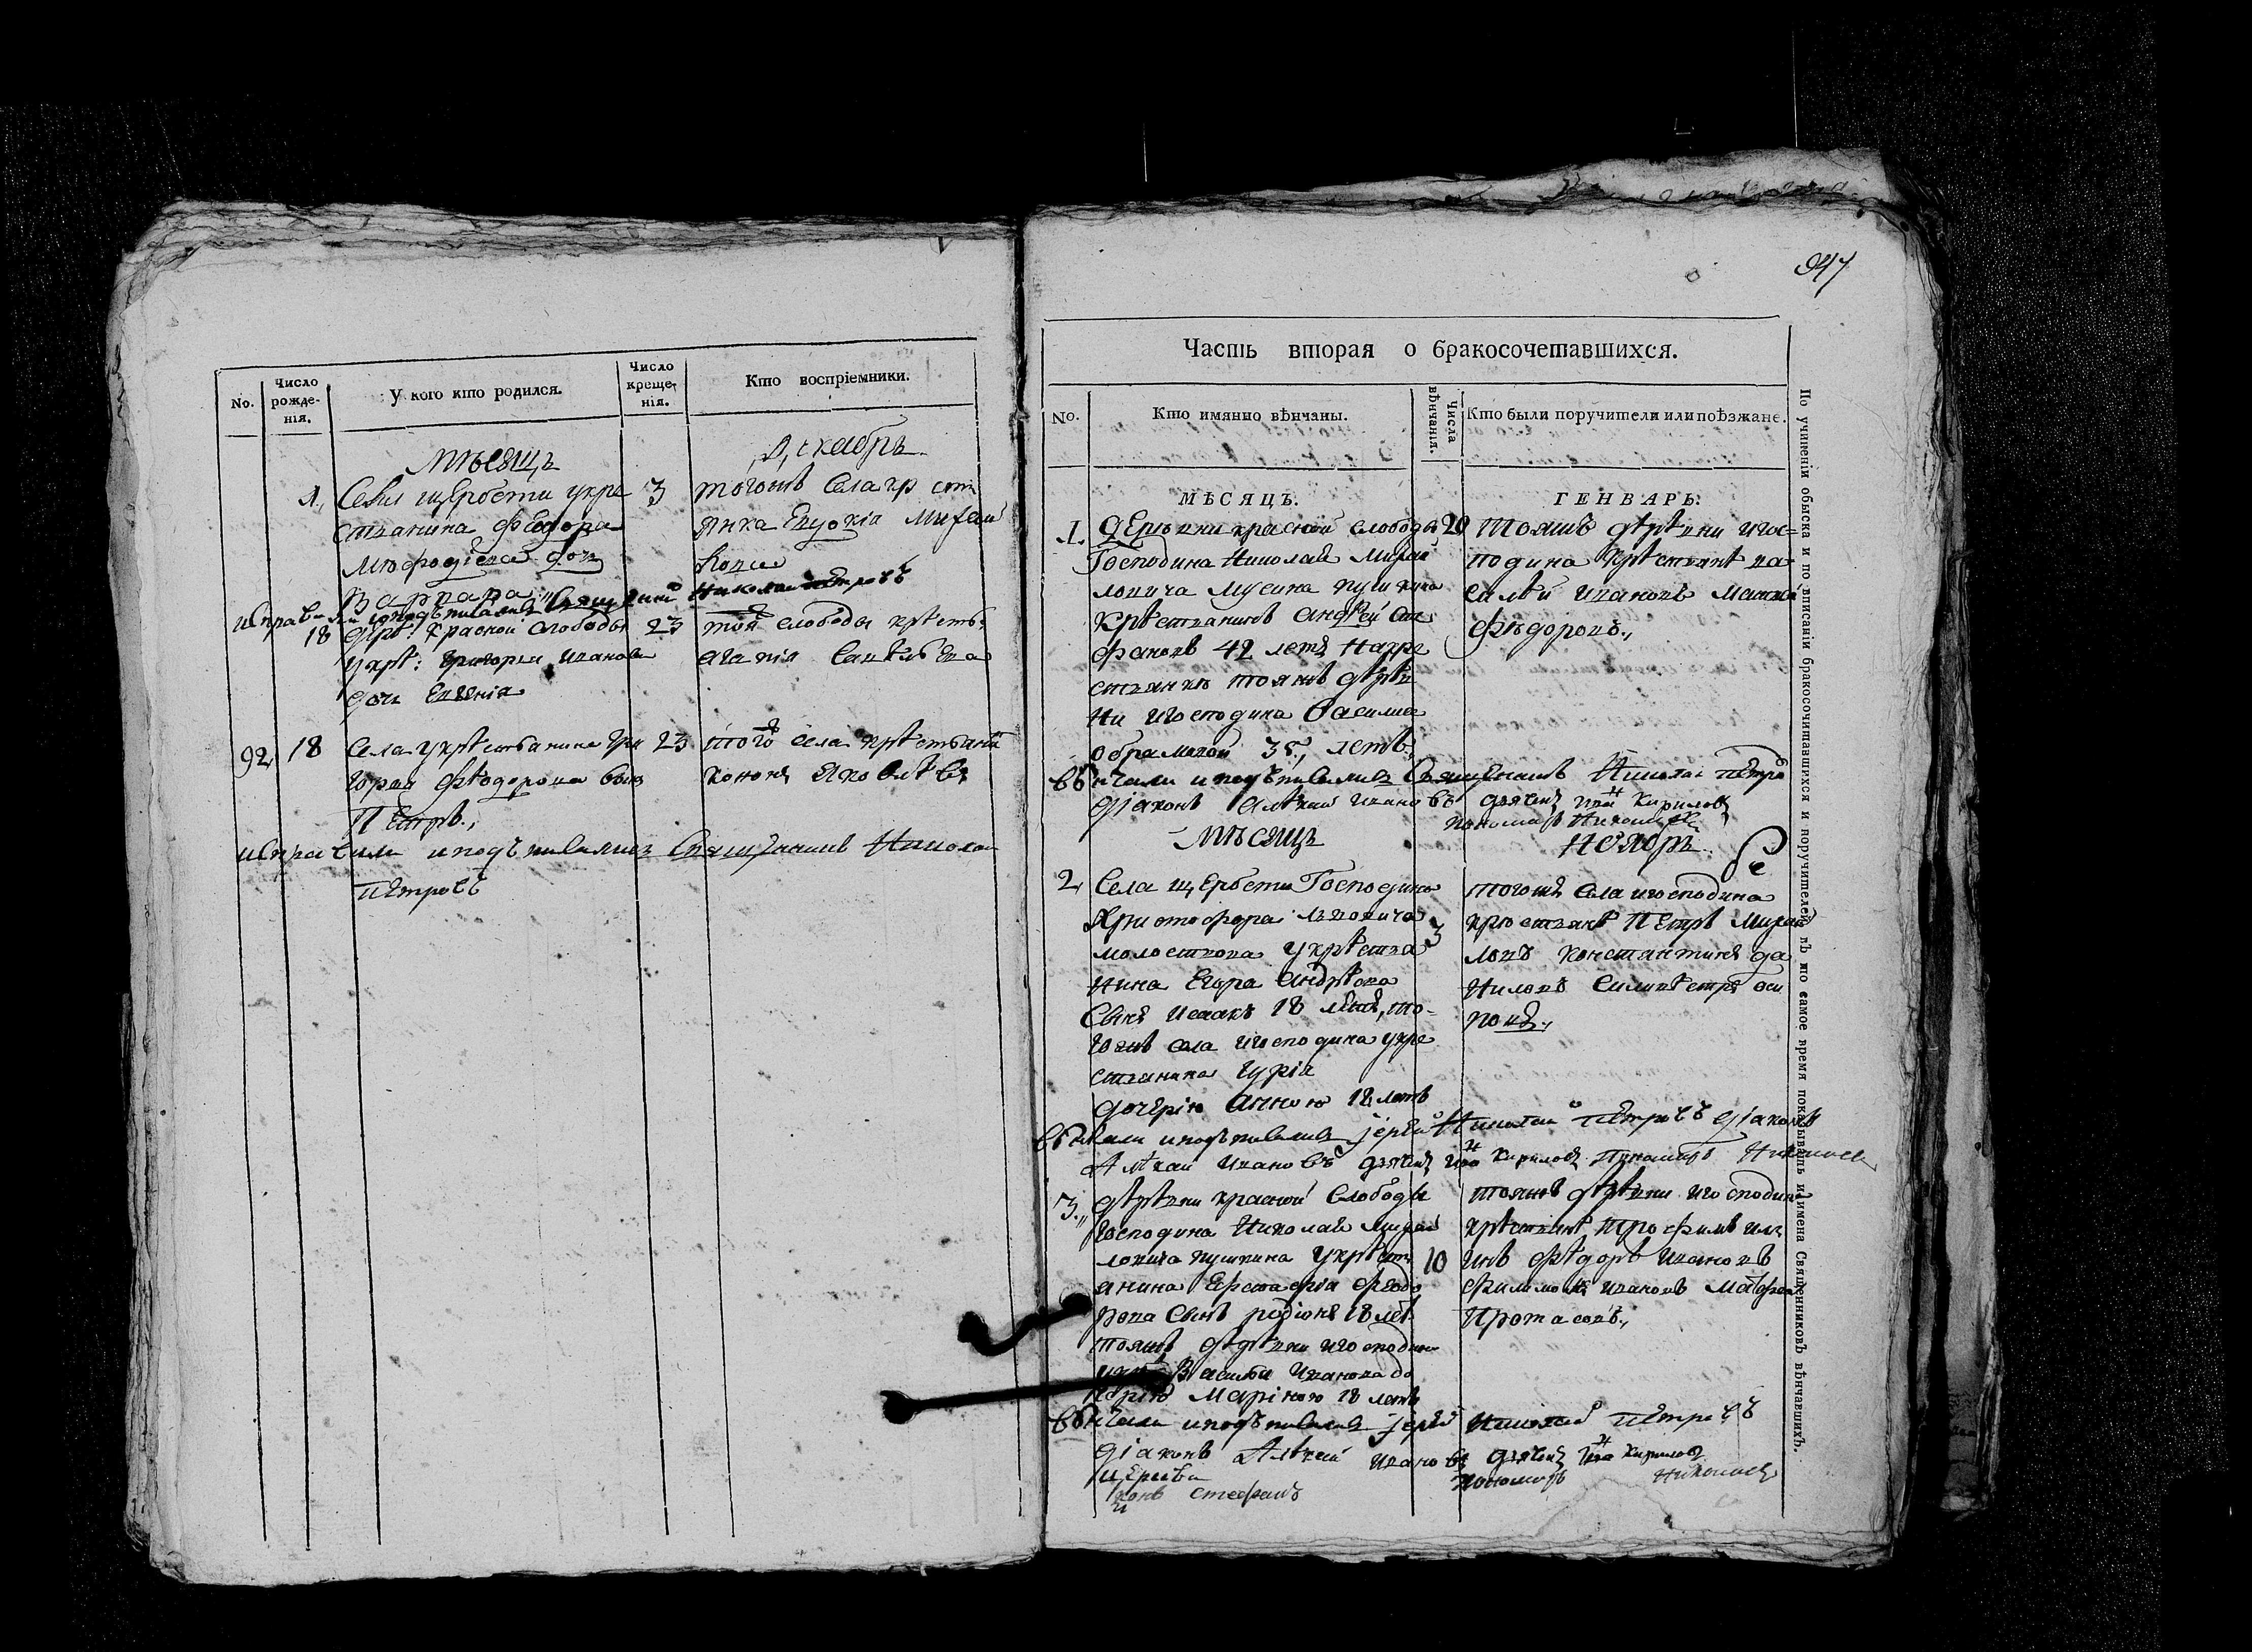 No.
Число рожде-нія.
У кого кто родился.
Число креще-нія.
Кто воспріемники.
мѣсяцъ
Декабрь
1.
3
Села щербети у кре
стьянина Федора
дочь
Варвара
тогожъ села кр ст
янка Евдокія Михай
лова
исправили и подъписались Священникъ Николай Петровъ
18
23
дерѣ: Красной слободы
у крѣ: Григорья Иванова
дочь Евгенія
тоя слободы крѣсть:
92,
18
23
Села у крѣстьянина Гри
горья Фѣодорова сынъ
Пѣтръ.,
того села крѣстьянинъ
Яковлѣвъ
исправили и подъписались Священникъ Николай
Пѣтровъ
947
Часть вторая о бракосочетавшихся.
No.
Кто имянно вѣнчаны.
Числа вѣнчанія.
Кто были поручители или поѣзжане.
МѢСЯЦЪ.
ГЕНВАРЬ.
1.
20
Дерѣвни красной слободы
Господина Николая Михай
ловича Мусина пушкина
Крѣстьянинъ Андрѣй Сте
фановъ 42 летъ На кре
стьянкѣ тояжъ дѣрѣв
ни и господина Василисе
летъ.
Тояжъ дѣрѣвни и гос=
подина Крѣстьянѣ ва
силѣй Ивановъ
Фѣдоровъ.,
вѣнчали и подъписались Священникъ Николай Пѣтро
Діаконъ Алѣксѣй Ивановъ дьячекъ Кириловъ
пономарь Николаевъ
мѣсяцъ
Ноябрь
2,
3
Села щербети Господина
Христофора львовича
молоствова у крѣстья
нина Егора Андрѣева
Сынъ Исаакъ 18 лѣтъ, то=
гожъ села и господина у кре
стьянина Гурія
дочерію Анною 18 летъ
тогожъ села и господина
крѣстьянѣ Пѣтръ Михай
ловъ Константинъ да
ниловъ Силивѣстръ оси
повъ.,
вѣнчали и подъписались іерей Николай Пѣтровъ Діаконъ
Алѣксѣй Ивановъ дьячекъ Кириловъ Пономарь Николаевъ
3.,,
10
Дѣрѣвни красной Слободы
Господина Николая Михай
ловича пушкина у крѣсть
янина Евстафія Фѣодо
рова Сынъ родіонъ 18 лѣт
тояжъ дѣрѣвни и господина
Василія Иванова до
чѣрію Маріною 18 летъ
тояжъ дѣрѣвни и господина
крѣстьянѣ Трофимъ иль
инъ Фѣдоръ Ивановъ
Филимонъ Ивановъ Матфей
Протасовъ.,
вѣнчали и подъписались іерей Николай Пѣтровъ
Діаконъ Алѣксѣй Ивановъ дьячекъ Кириловъ
пономарь Николаевъ
По учиненіи обыска и по вписаніи бракосочетавшихся и поручителей въ то самое время показывать и имена Священниковъ вѣнчавшихъ.